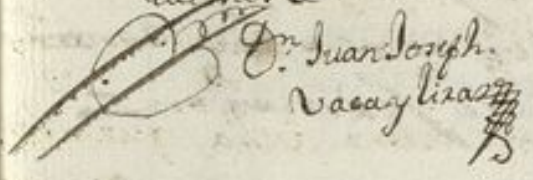 Dn. Juan Joseph.
Vaca y lizaso